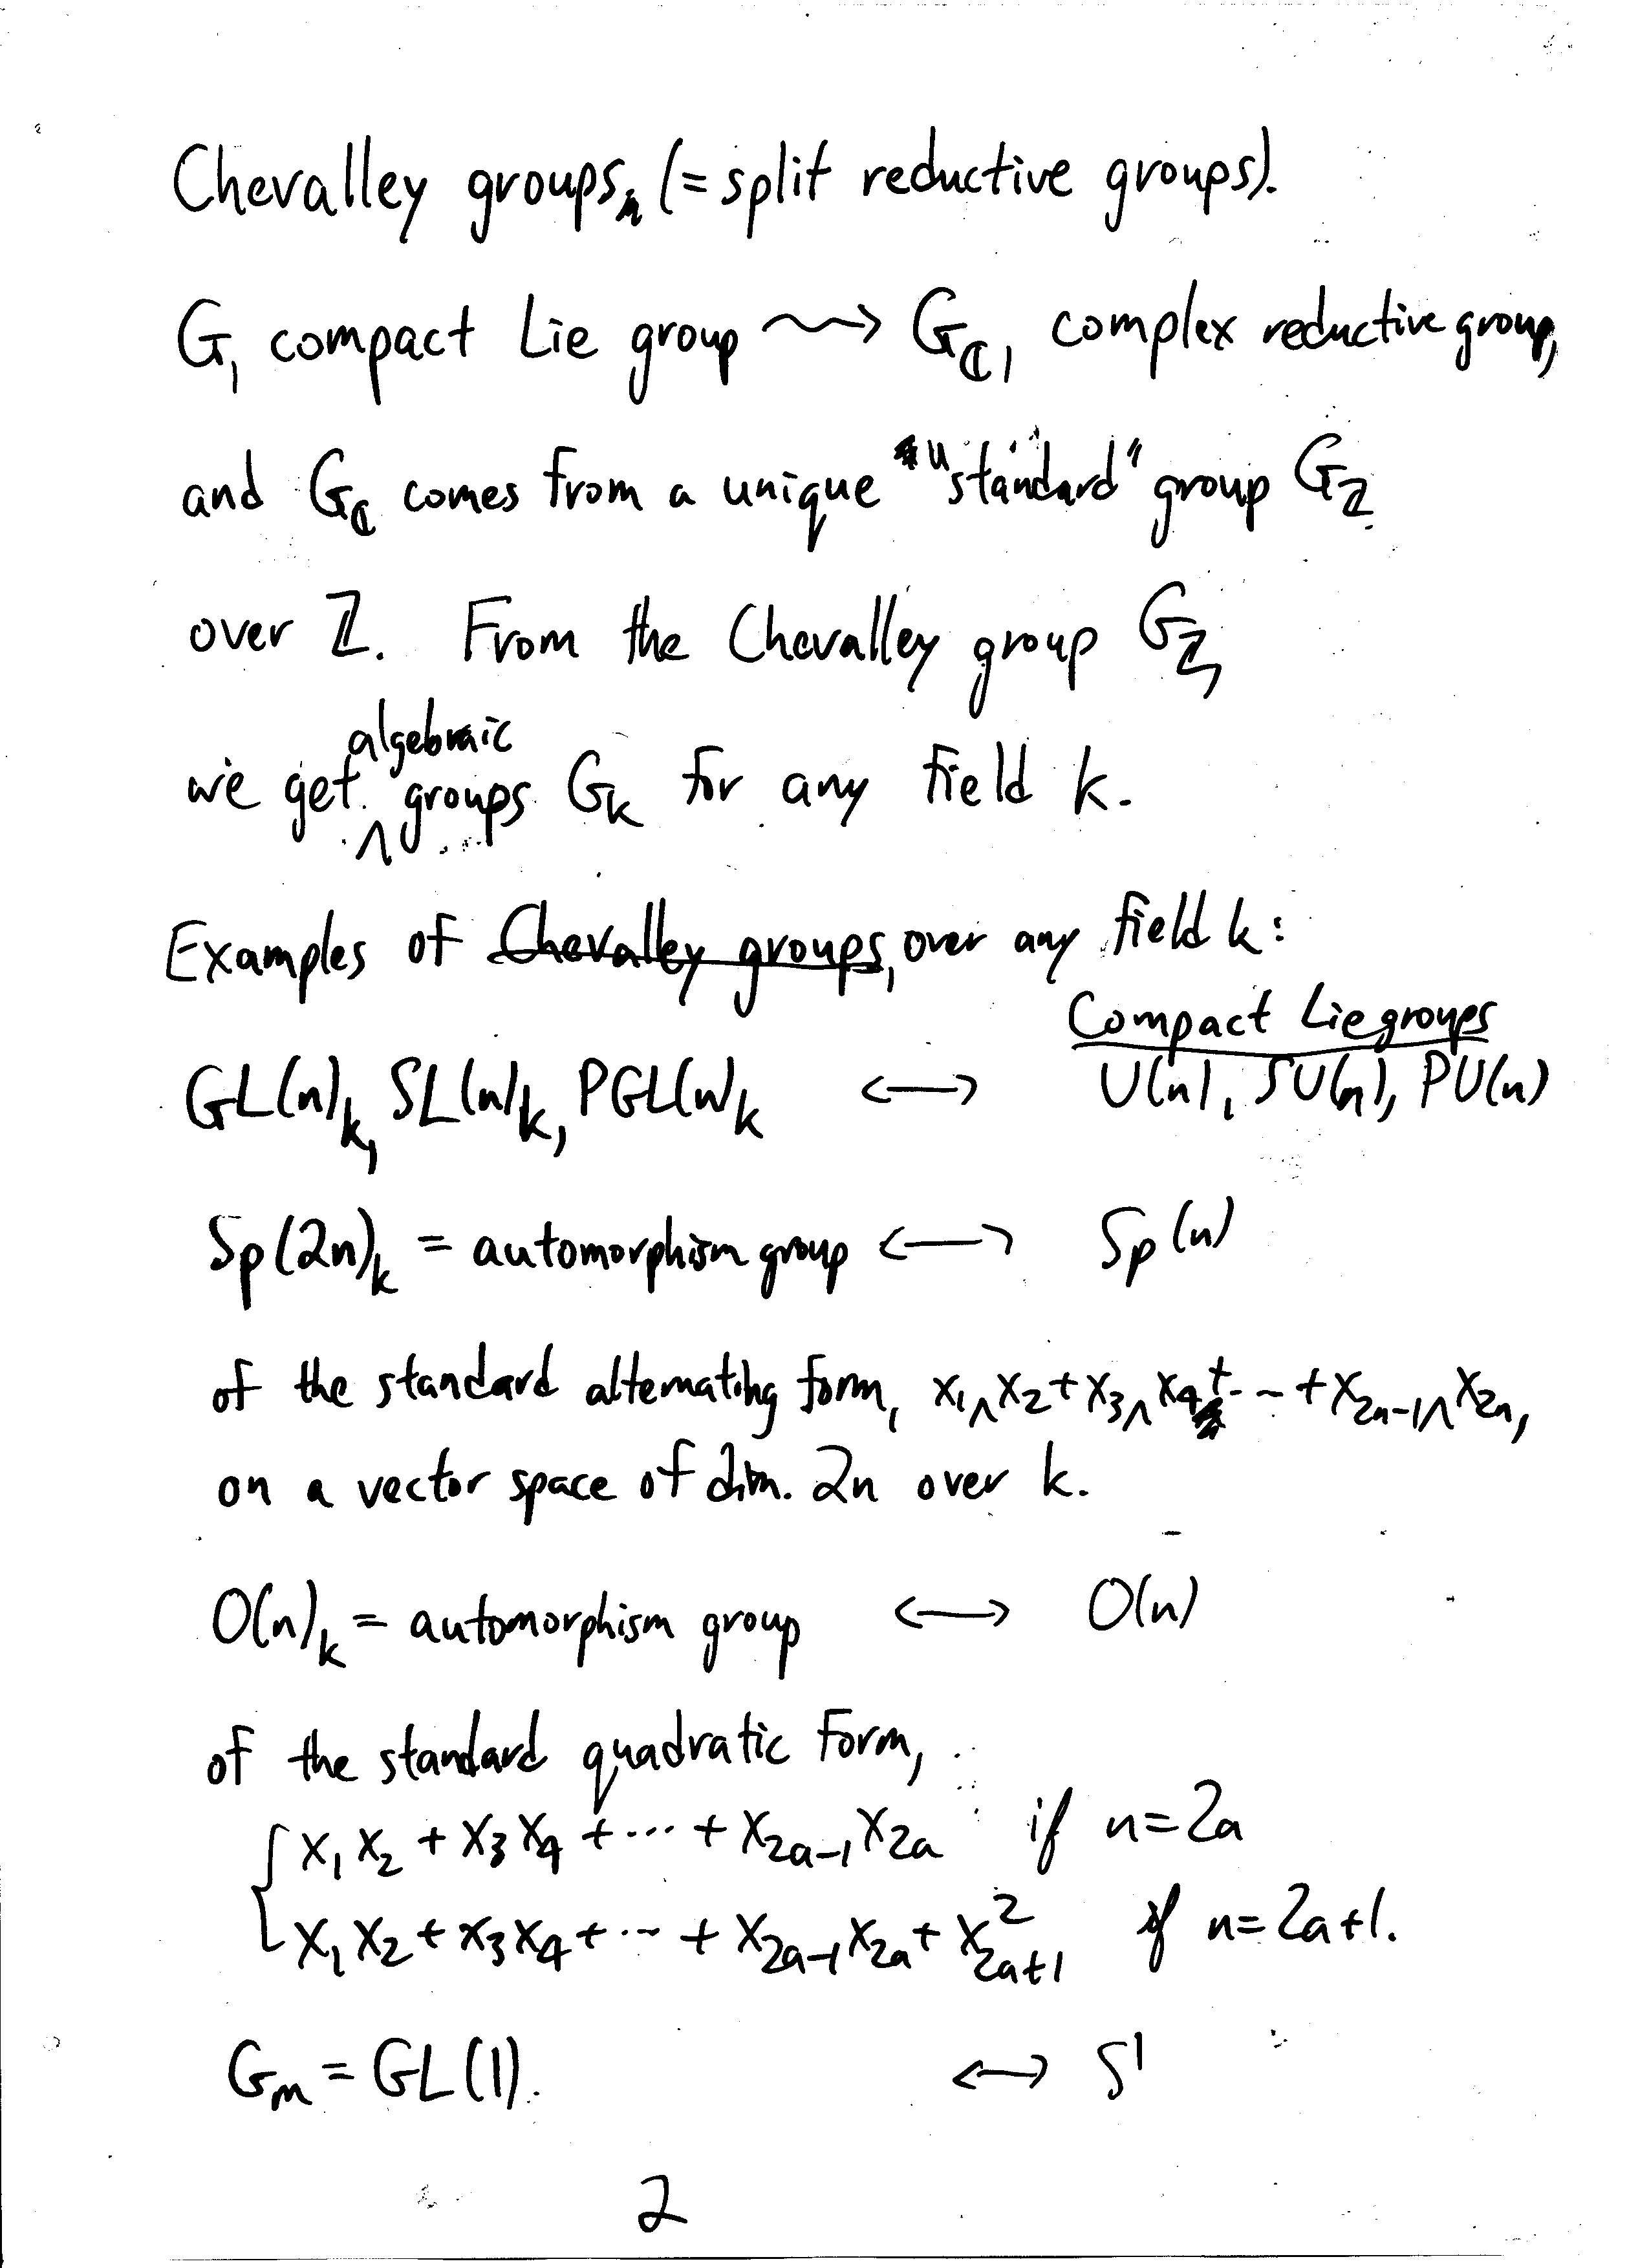 Chevalley groups, (= split reductive groups).
G, compact Lie group ⇝ G_ℂ, complex reductive group,
and G_ℂ comes from a unique "standard" group G_ℤ
over ℤ. From the Chevalley group G_ℤ,
we get algebraic groups G_k for any field k.
Examples of Chevalley groups, over any field k:
Compact Lie groups
GL(n)_k, SL(n)_k, PGL(n)_k ⟷ U(n), SU(n), PU(n)
Sp(2n)_k = automorphism group ⟷ Sp(n)
of the standard alternating form, x₁∧x₂+x₃∧x₄+⋯+x_{2n-1}∧x_{2n},
on a vector space of dim. 2n over k.
O(n)_k = automorphism group ⟷ O(n)
of the standard quadratic form,
{ x₁x₂ + x₃x₄ + ⋯ + x_{2a-1}x_{2a} if n=2a
x₁x₂ + x₃x₄ + ⋯ + x_{2a-1}x_{2a} + x²_{2a+1} if n=2a+1.
G_m = GL(1). ⟷ S¹
2